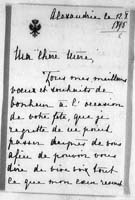 Alexandrie le 12.8
1895
Ma chère Mère,
Tous mes meilleurs
vœux et souhaits de
bonheur à l'occasion
de votre fête, que je
regrette de ne pouvoir
passer auprès de vous
afin de pouvoir vous
dire de vive voix tout
ce que mon cœur